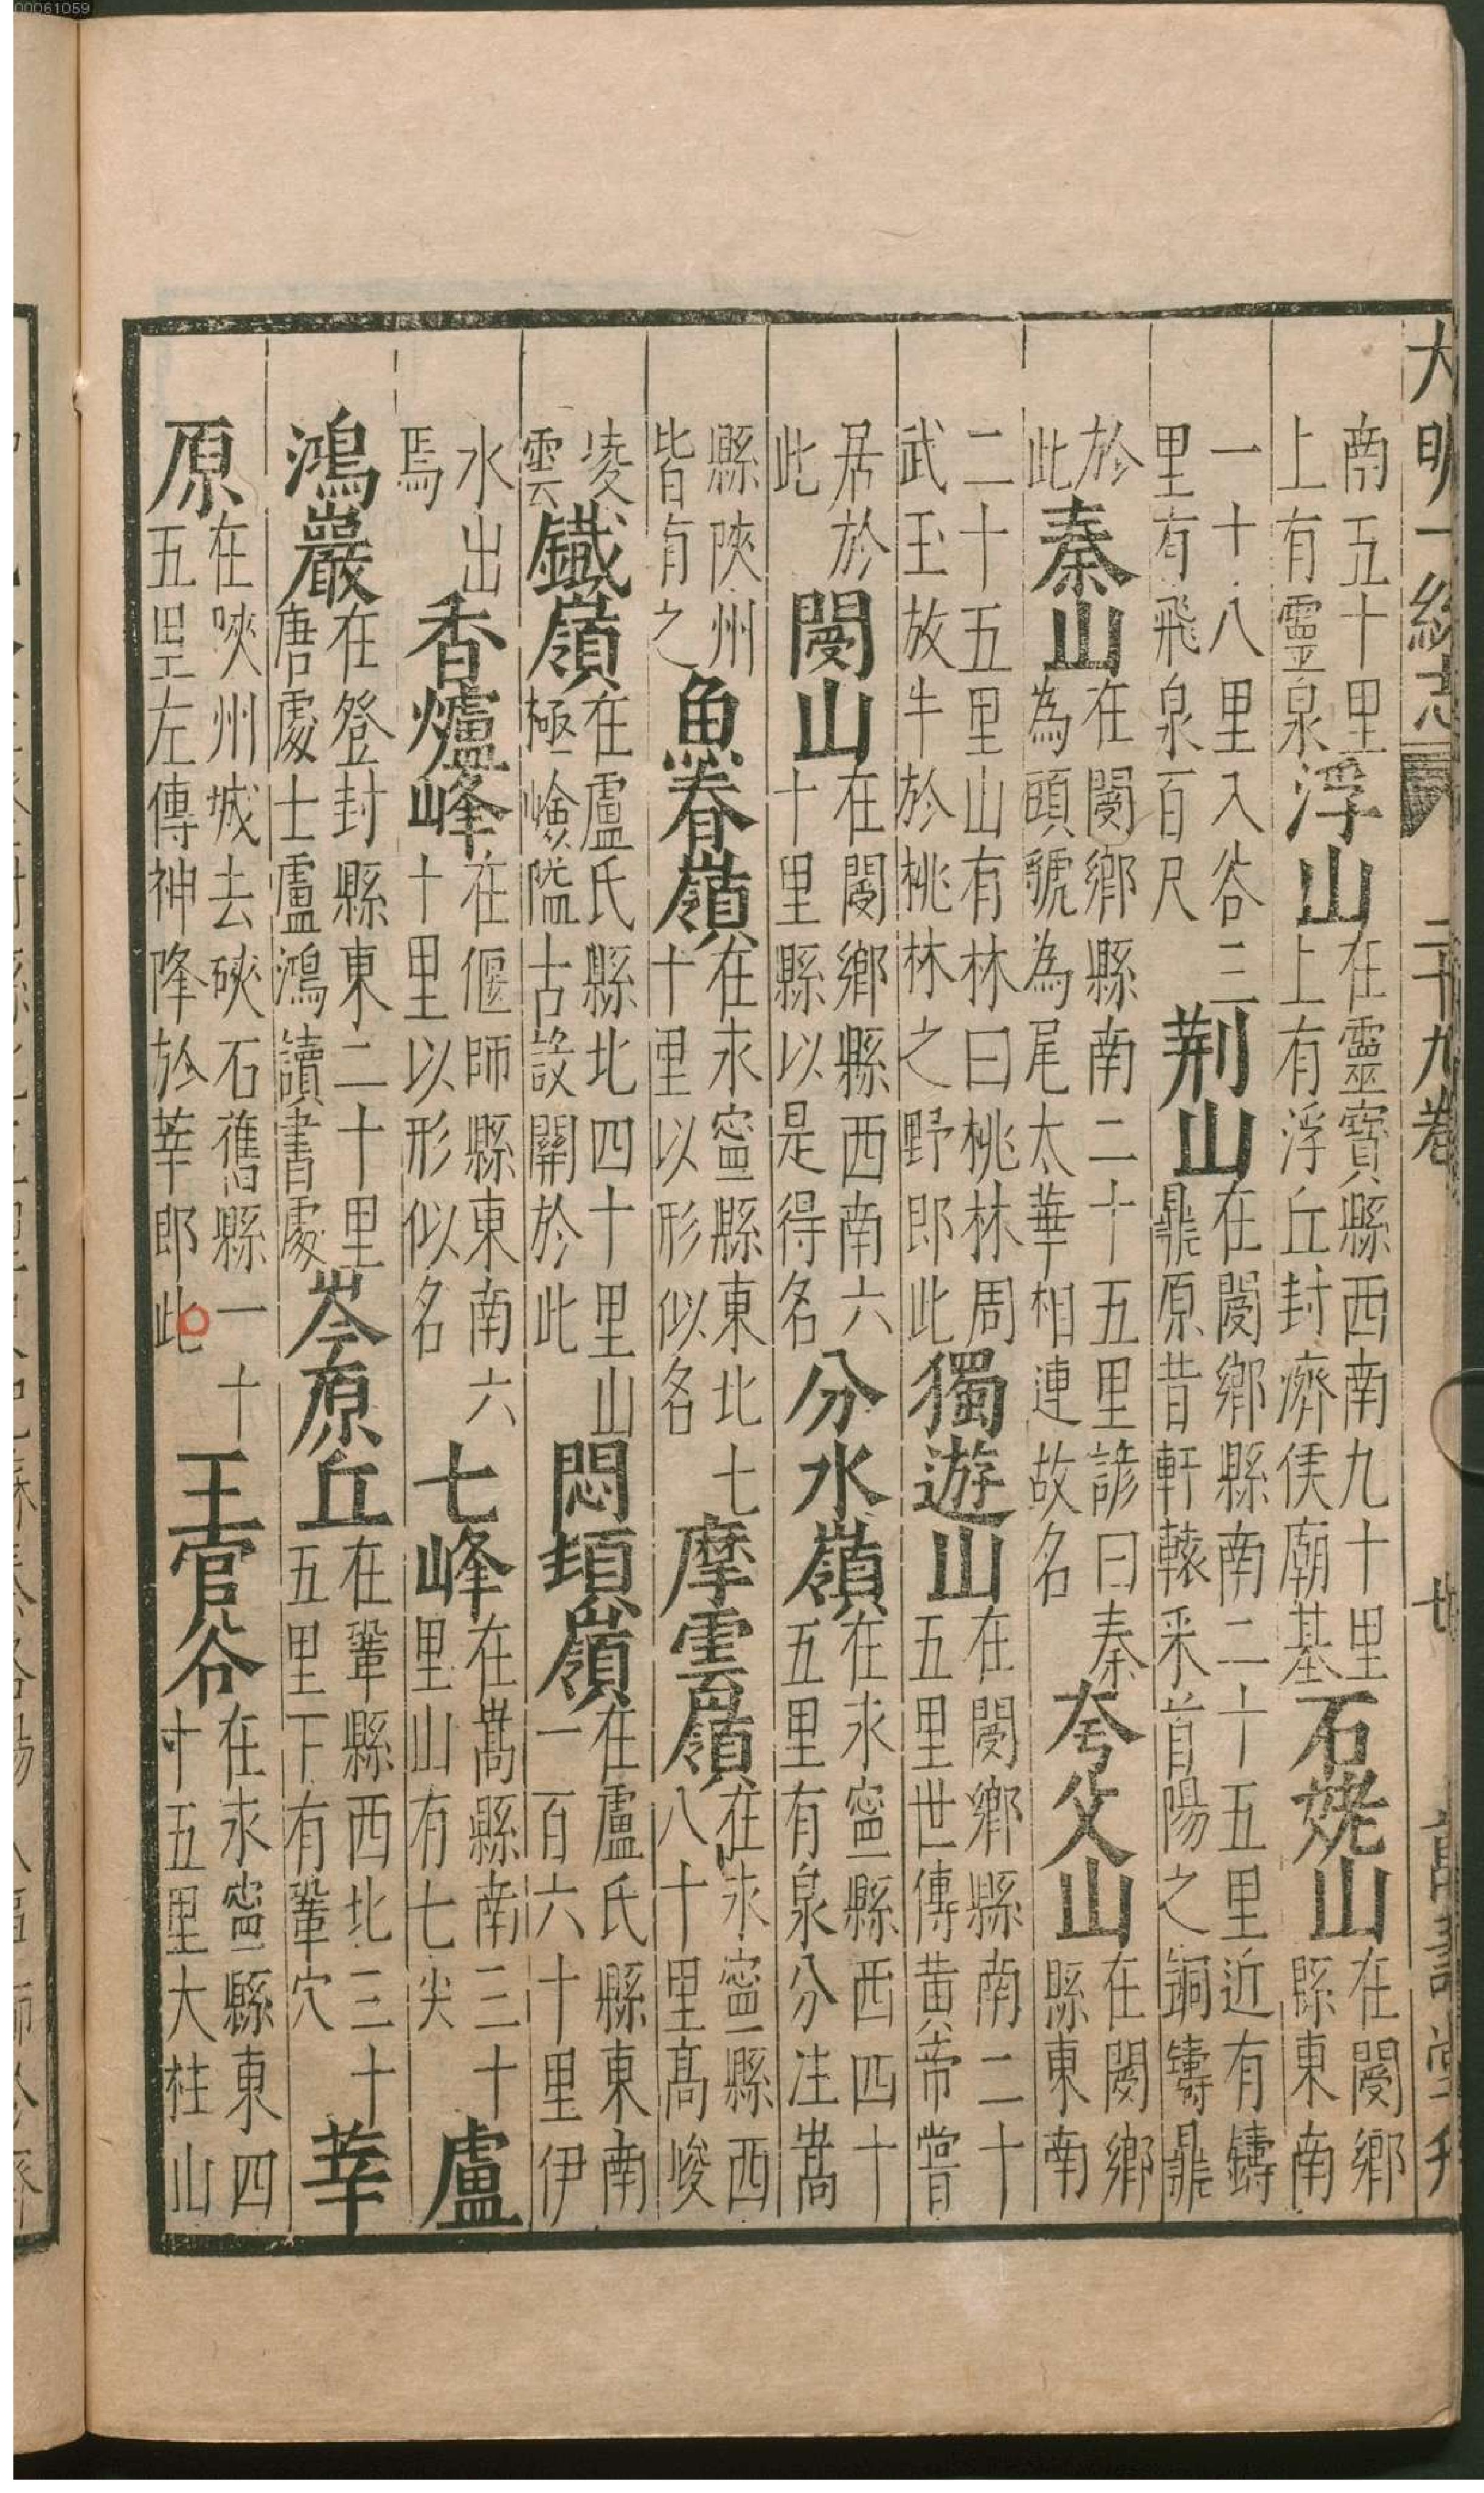 00061059
大明一統志 二十九卷 萬壽堂刊
南五十里上有靈泉浮山在靈寶縣西南九十里上有浮丘封濟侯廟基石姥山在閿鄉縣東南
一十八里入谷三里有飛泉百尺荆山在閿鄉縣南二十五里近有鑄鼎原昔軒轅采首陽之銅鑄鼎
於此秦山在閿鄉縣南二十五里諺曰秦為頭虢為尾太華相連故名夸父山在閿鄉縣東南
二十五里山有林曰桃林周武王放牛於桃林之野即此獨遊山在閿鄉縣南二十五里世傳黄帝嘗
居於此閿山在閿鄉縣西南六十里縣以是得名分水嶺在永寧縣西四十五里有泉分注嵩
縣陜州皆有之魚脊嶺在永寧縣東北七十里以形似名摩雲嶺在永寧縣西八十里髙峻
凌雲鐵嶺在盧氏縣北四十里山極嶮隘古設關於此悶頓嶺在盧氏縣東南一百六十里伊
水出焉香爐峰在偃師縣東南六十里以形似名七峰在嵩縣南三十里山有七尖盧
鴻巖在登封縣東二十里唐處士盧鴻讀書處岑原丘在鞏縣西北三十五里下有鞏穴莘
原在陜州城去硤石舊縣一十五里左傳神降於莘即此王官谷在永寧縣東四十五里大柱山